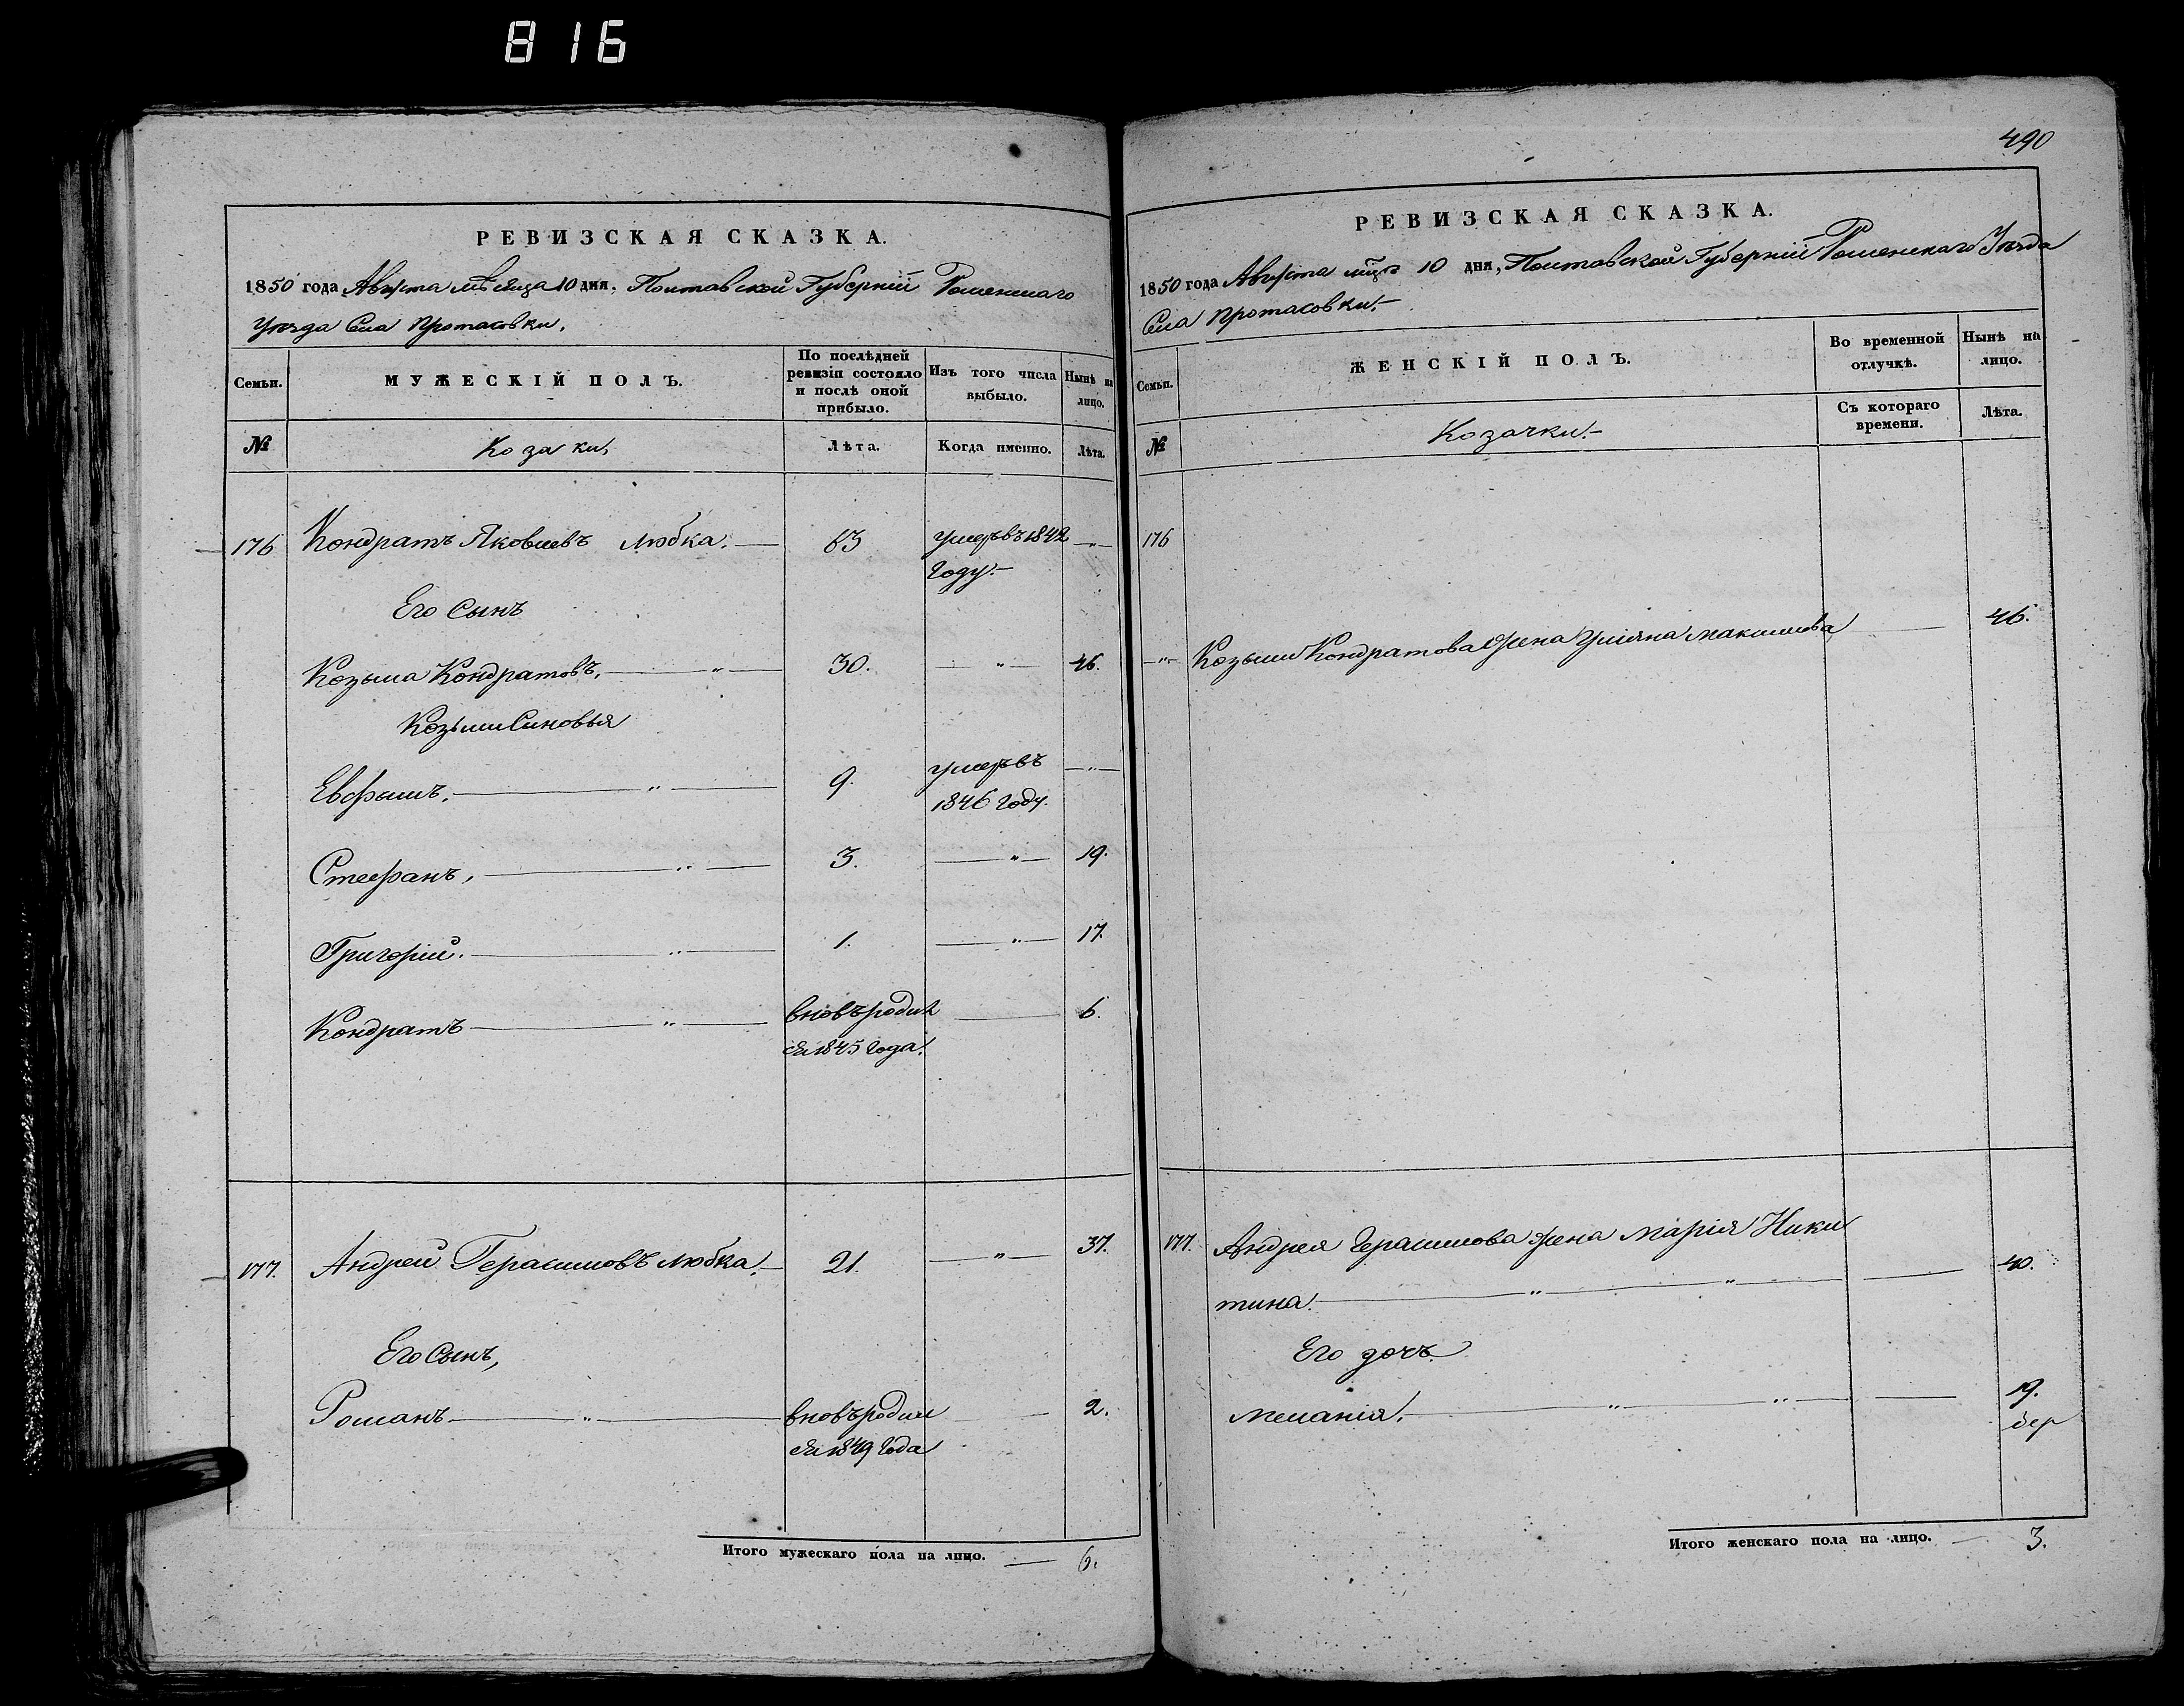 816
РЕВИЗСКАЯ СКАЗКА.
1850 года Августа мѣсяца 10 дня, Полтавской Губерніи Роменскаго
Уѣзда Села Протасовки.
Семьи.
МУЖЕСКІЙ ПОЛЪ.
По послѣдней
ревизіи состояло
и послѣ оной
прибыло.
Изъ того числа
выбыло.
Нынѣ на
лицо.
№
Козаки,
Лѣта.
Когда именно.
Лѣта.
176 Кондратъ Яковлевъ Любка. — 63 умеръ въ 1842 — " —
году. —
Его Сынъ
Козьма Кондратовъ, — " — 30. — " — 46.
Козьми Синовья
Евфимъ. — " — 9. умеръ въ — " —
1846 году.
Стефанъ, — " — 3. — " — 19.
Григорій. — " — 1. — " — 17.
Кондратъ — " — вновь родил — 6.
ся 1845 года.
177. Андрей Герасимовъ Любка. — 21. — " — 37.
Его Сынъ,
Романъ — " — вновь родил — 2.
ся 1849 года
Итого мужескаго пола на лицо. — 6.
490
РЕВИЗСКАЯ СКАЗКА.
1850 года Августа мца 10 дня, Полтавской Губерніи Роменскаго Уѣзда
Села Протасовки. —
Семьи.
ЖЕНСКІЙ ПОЛЪ.
Во временной
отлучкѣ.
Нынѣ на
лицо.
№
Козачки. —
Съ котораго
времени.
Лѣта.
176
— " — Козьми Кондратова жена Уліяна Максимова — 46.
177. Андрея Герасимова жена Марія Ники
тина. — " — " — 40.
Его дочь
Меланія. — " — " — 19.
Итого женскаго пола на лицо. — 3.